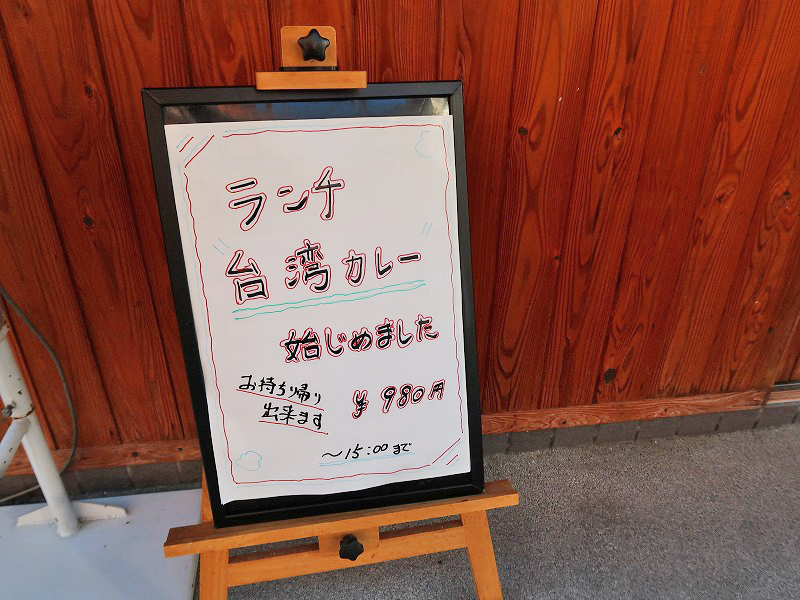 ランチ
台湾カレー
始じめました
お持ち帰り
出来ます
¥980円
～15:00まで